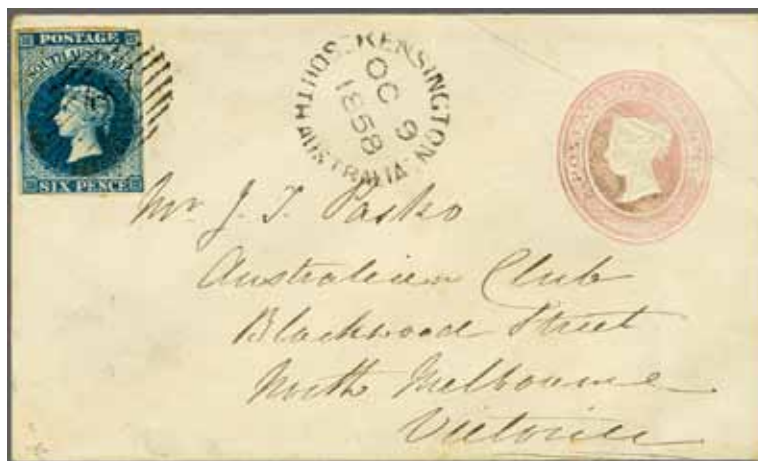 POSTAGE
SOUTH AUSTRALIA
SIX PENCE
KENSINGTON
OC 9
1858
SOUTH AUSTRALIA
POSTAGE ONE PENNY
Mr J. T. Pasko
Australian Club
Blackwood Street
North Melbourne
Victoria